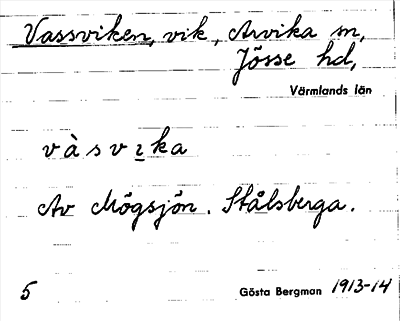 Vassviken, vik, Arvika sn,
Jösse hd,
Värmlands län
vàsvịka
Av Mögsjön. Stålsberga.
5 Gösta Bergman 1913-14